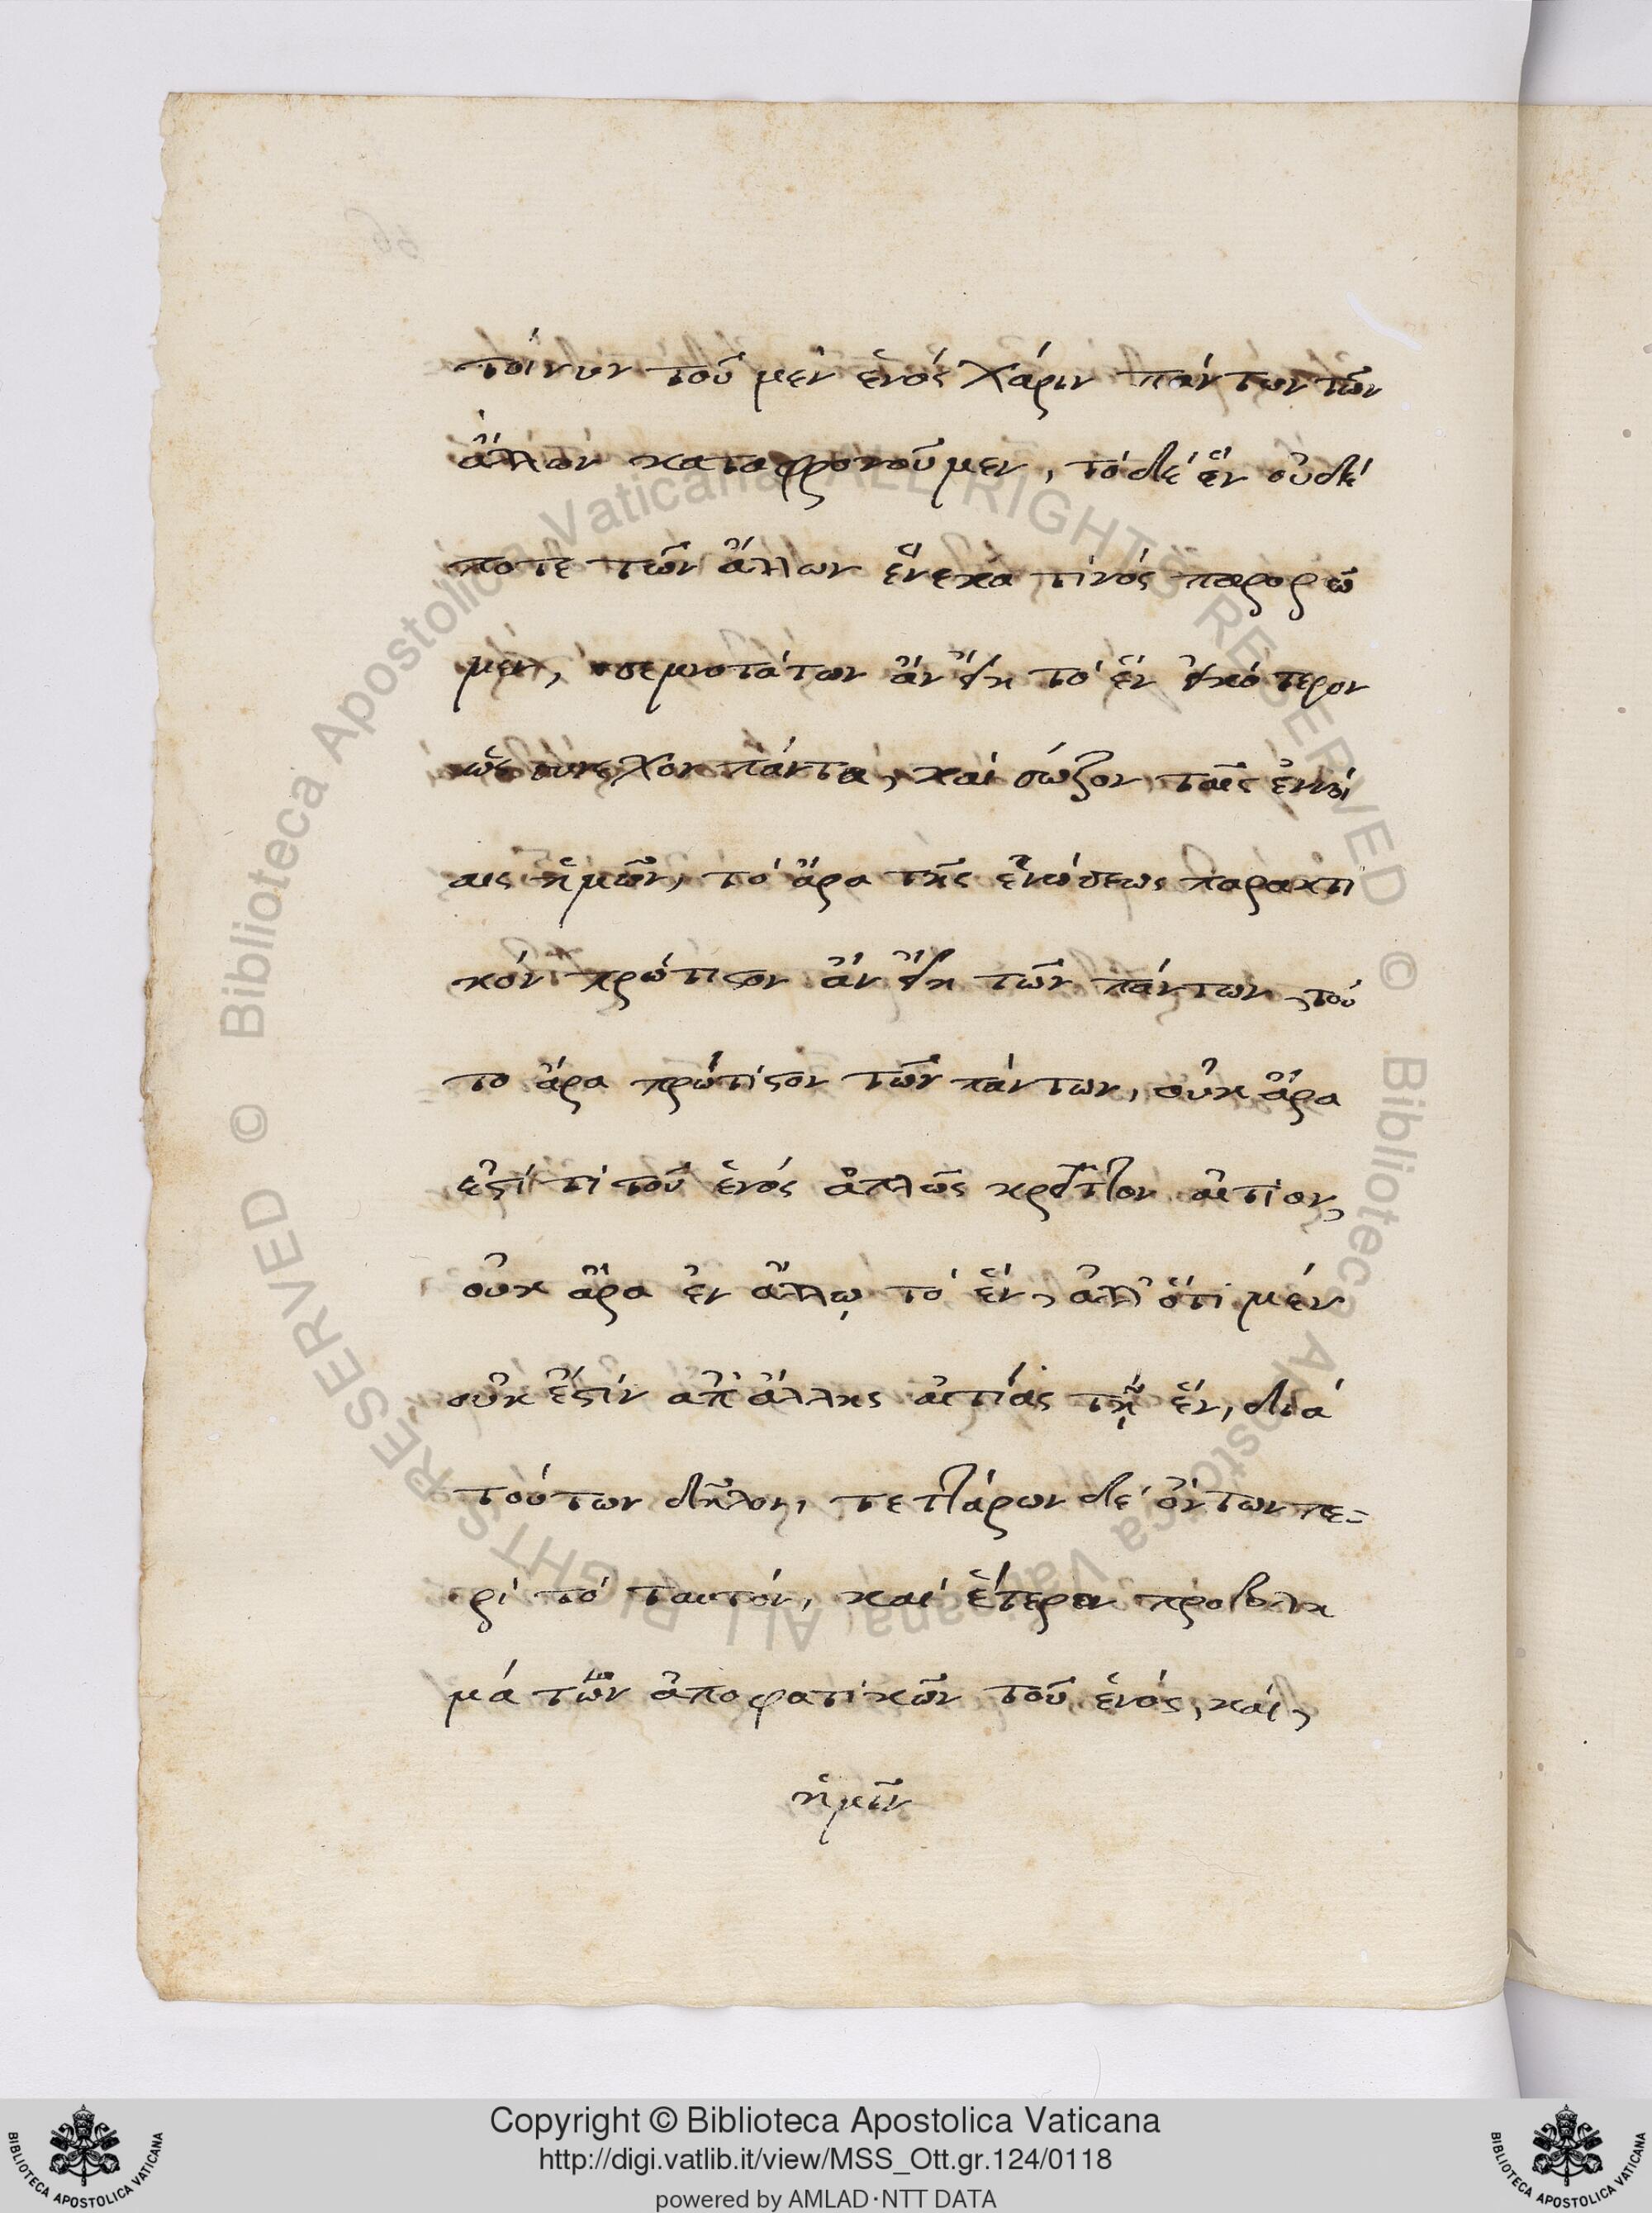 τοίνυν τοῦ μὲν ἑνός χάριν πάντων τῶν
ἄλλων καταφρονοῦμεν, τὸ δὲ ἓν οὐδέ
ποτε τῶν ἄλλων ἕνεκά τινός παρορῶ
μεν, σεμνοτάτων ἂν εἴη τὸ ἓν εἰκότερον
ὡς συνέχον πάντα, καὶ σώζον ταῖς ἐννοί
αις ἡμῶν, τὸ ἄρα τῆς ἑνώσεως παρακτι
κόν πρώτιστον ἂν εἴη τῶν πάντων, τοῦ
το ἄρα πρώτιστον τῶν πάντων, οὐκ ἄρα
ἐστί τι τοῦ ἑνός ἁπλῶς κρεῖττον αἴτιον,
οὐκ ἄρα ἐν ἄλλῳ τὸ ἕν, ἀλλ' ὅτι μέν
οὐκ ἔστιν ἀπ' ἄλλης αἰτίας τῇ ἕν, διά
τούτων δῆλον, τεττάρων δὲ ὄντων πε=
ρὶ τὸ ταυτόν, καὶ ἕτερον προβλη
μάτων ἀποφατικῶν τοῦ ἑνός, καί,
ἡμῖν
Copyright © Biblioteca Apostolica Vaticana
http://digi.vatlib.it/view/MSS_Ott.gr.124/0118
powered by AMLAD·NTT DATA
BIBLIOTECA APOSTOLICA VATICANA
BIBLIOTECA APOSTOLICA VATICANA
© Biblioteca Apostolica Vaticana ALL RIGHTS RESERVED © Biblioteca Apostolica Vaticana ALL RIGHTS RESERVED